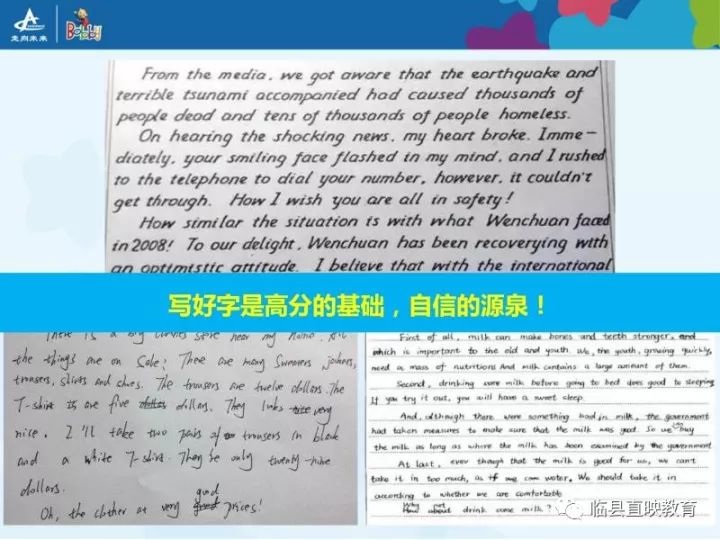 走向未来
Bobby
From the media, we got aware that the earthquake and
terrible tsunami accompanied had caused thousands of
people dead and tens of thousands of people homeless.
On hearing the shocking news, my heart broke. Imme-
diately, your smiling face flashed in my mind, and I rushed
to the telephone to dial your number, however, it couldn't
get through. How I wish you are all in safety!
How similar the situation is with what Wenchuan faced
in 2008! To our delight, Wenchuan has been recoverying with
an optimistic attitude. I believe that with the international
写好字是高分的基础，自信的源泉！
There is a big clothes store near my home. All
the things are on Sale: There are many Sweaters
trousers, shirts and shoes. The trousers are twelve dollars. The
T-shirt is are five dollars. They looks very
nice. I'll take two pairs of trousers in black
and a white T-shirt. They're only twenty-nine
dollars.
Oh, the clother at very good prices!
First of all, milk can make bones and teeth stronger, and
which is important to the old and youth. We, the youth, growing quickly,
need a mass of nutritions And milk contains a large amount of them.
Second, drinking some milk before going to bed does good to sleeping
If you try it out, you will have a sweet sleep.
And, although there were something bad in milk, the government
had taken measures to make sure that the milk was good. So we can buy
the milk as long as where the milk has been examined by the government
At last, ever though that the milk is good for us, we can't
take it in too much, as if we water. We should take it in
according to whether we are comfortable
Why not
How about drink some milk?
临县直映教育